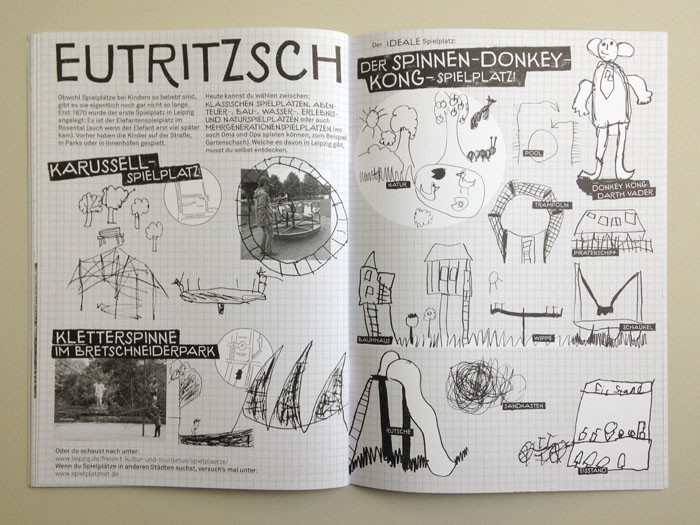 EUTRITZSCH
Obwohl Spielplätze bei Kindern so beliebt sind,
gibt es sie eigentlich noch gar nicht so lange.
Erst 1870 wurde der erste Spielplatz in Leipzig
angelegt. Es ist der Elefantenspielplatz im
Rosental (auch wenn der Elefant erst viel später
kam). Vorher haben die Kinder auf der Straße,
in Parks oder in Innenhöfen gespielt.
Heute kannst du wählen zwischen:
KLASSISCHEN SPIELPLÄTZEN, ABEN-
TEUER-, BAU-, WASSER-, ERLEBNIS-
UND NATURSPIELPLÄTZEN oder auch
MEHRGENERATIONENSPIELPLÄTZEN (wo
auch Oma und Opa spielen können, zum Beispiel
Gartenschach). Welche es davon in Leipzig gibt,
musst du selbst entdecken.
KARUSSELL-
SPIELPLATZ
KLETTERSPINNE
IM BRETSCHNEIDERPARK
Oder du schaust nach unter:
www.leipzig.de/freizeit-kultur-und-tourismus/spielplaetze/
Wenn du Spielplätze in anderen Städten suchst, versuch's mal unter:
www.spielplatznet.de
Der IDEALE Spielplatz:
DER SPINNEN-DONKEY-
KONG-SPIELPLATZ!
NATUR
POOL
DONKEY KONG
DARTH VADER
TRAMPOLIN
PIRATENSCHIFF
BAUMHAUS
WIPPE
SCHAUKEL
RUTSCHE
SANDKASTEN
Eis Stand
EISSTAND